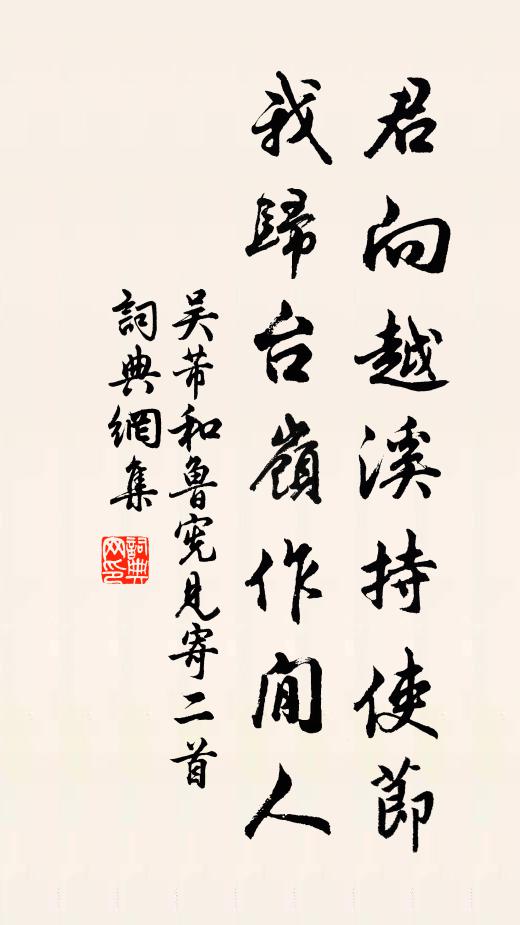 君向越溪持使節
我歸台嶺作閒人
吴芾和魯漕見寄二首
詞典網集
詞典网印